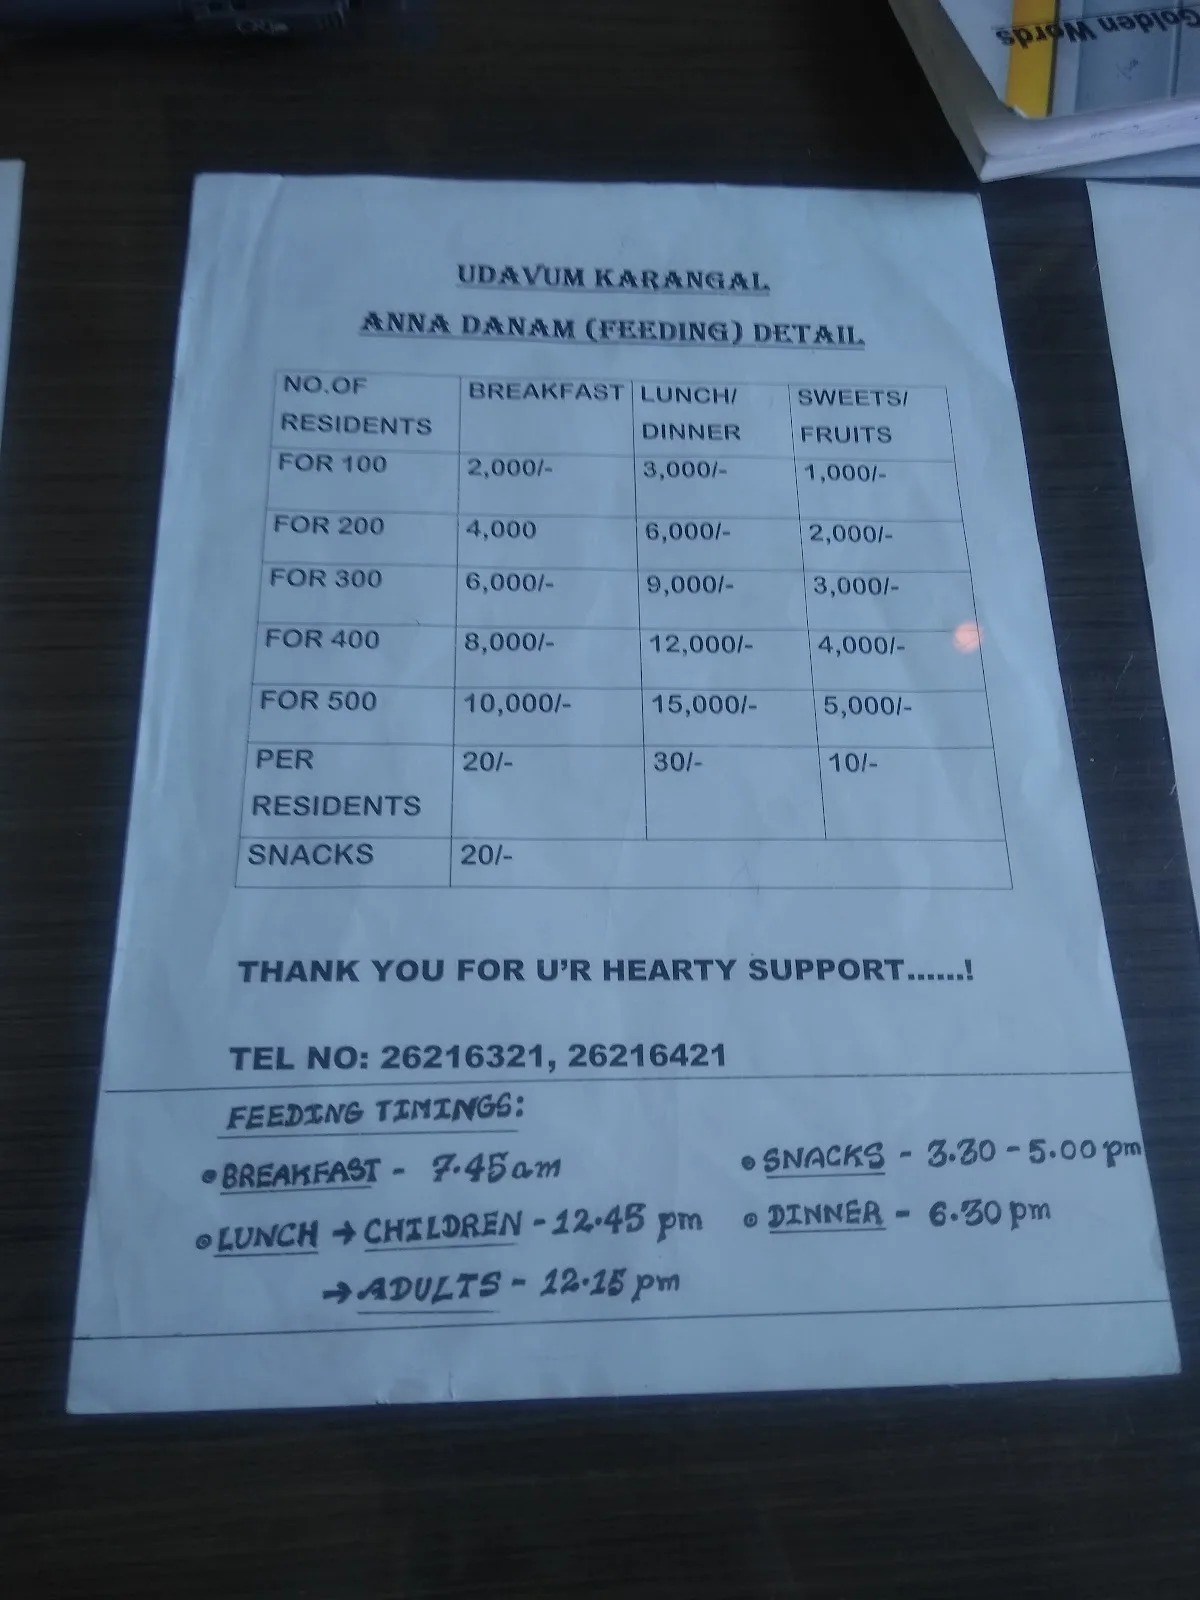 Golden Words
UDAVUM KARANGAL
ANNA DANAM (FEEDING) DETAIL
NO.OF RESIDENTS BREAKFAST LUNCH/ DINNER SWEETS/ FRUITS
FOR 100 2,000/- 3,000/- 1,000/-
FOR 200 4,000 6,000/- 2,000/-
FOR 300 6,000/- 9,000/- 3,000/-
FOR 400 8,000/- 12,000/- 4,000/-
FOR 500 10,000/- 15,000/- 5,000/-
PER RESIDENTS 20/- 30/- 10/-
SNACKS 20/-
THANK YOU FOR U'R HEARTY SUPPORT......!
TEL NO: 26216321, 26216421
FEEDING TIMINGS:
BREAKFAST - 7.45am
SNACKS - 3.30 - 5.00 pm
LUNCH → CHILDREN - 12.45 pm
DINNER - 6.30 pm
→ ADULTS - 12.15 pm